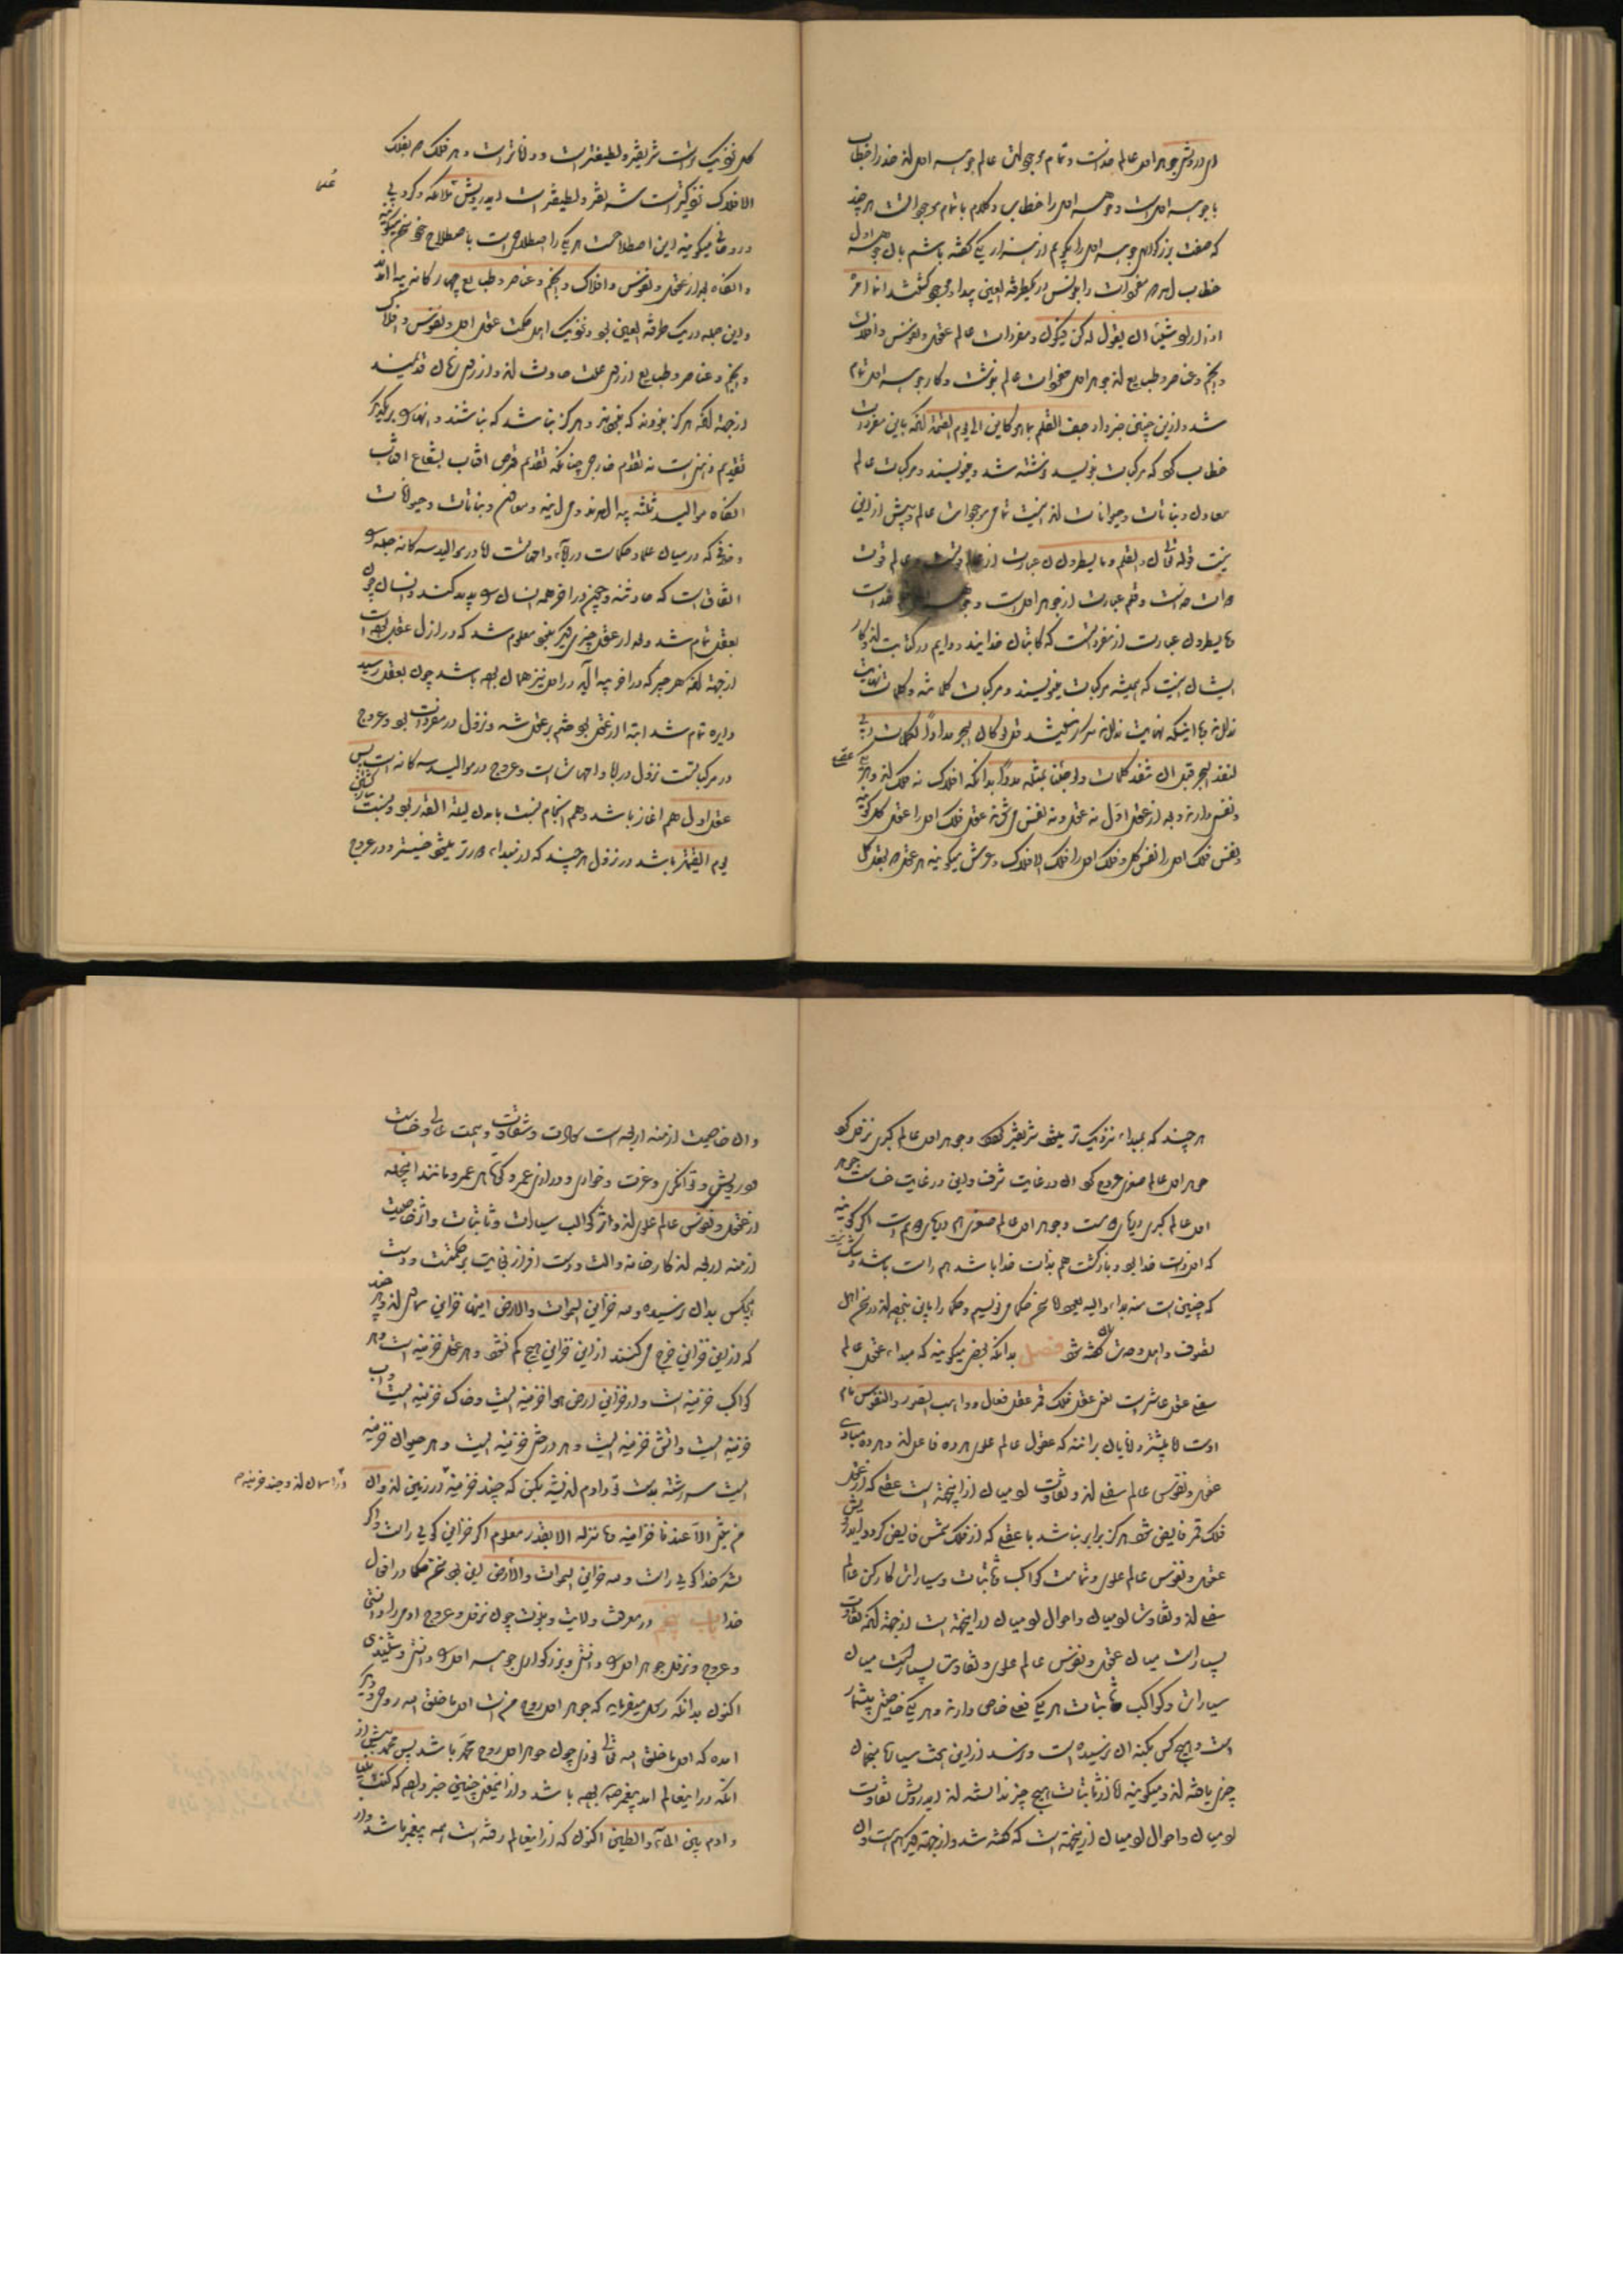 ای درویش جوهر اول عالم خداست و تمام موجودات عالم جوهر اول‌اند خدا را خطاب
با جوهر اول است و جوهر اول را خطاب و کلام با تمام موجودات هر چند
که صفت بزرگواری جوهر اول را بگویم از هزار یکی گفته باشم بآن جوهر اول
خطاب آمد که مفردات را بنویس در یک طرفة العین پیدا و موجود گشتند انما امره
اذا اراد شیئا ان یقول له کن فیکون و مفردات عالم عقول و نفوس و افلاک
و انجم و عناصر و طبایع‌اند جوهر اول مفردات عالم بنوشت و کار جوهر اول تمام
شد و ازین چنین خبر داد جف القلم بما هو کاین الی یوم القیمة آنگه باین مفردات
خطاب کرد که مرکبات بنویسید و نوشته شد و مینویسند و مرکبات عالم
معادن و نباتات و حیوانات‌اند اینست تمامی موجودات عالم و بیش ازین
نیست قوله تعالی ن والقلم و ما یسطرون ن عبارت از عالم قوتست و عالم قوت
ذات خداست و قلم عبارت از جوهر اول است و خداست
ما یسطرون عبارت از مفرداتست که کاتبان خدایند و دایم در کتابت‌اند و کار
ایشان اینست که همیشه مرکبات مینویسند و مرکبات کلماتند و کلمات نهایت
ندارند با اینکه نهایت ندارند مکرر نیستند قل لو کان البحر مدادا لکلمات ربی
لنفد البحر قبل ان تنفد کلمات ربی ولو جئنا بمثله مددا بدانکه افلاک نه فلک‌اند و هر یک عقلی
و نفسی دارند و بعد از عقل اول نه عقل و نه نفس می‌شود عقل فلک اول را عقل کل گویند
و نفس فلک اول را نفس کل و فلک اول را فلک الافلاک و عرش میگویند هر عقل که بعقل کل
کل نزدیکتر است شریفتر و لطیفتر است و داناتر است و هر فلک که بفلک
الافلاک نزدیکتر است شریفتر و لطیفتر است ای درویش ملائکه کروبی
و روحانی میگویند این اصطلاحست هر یک را اصطلاحی است باصطلاح خود سخن میگویند
و آنگاه بعد از عقول و نفوس و افلاک و انجم و عناصر و طبایع چهارگانه پیدا آمدند
و این جمله در یک طرفة العین بود و نزدیک اهل حکمت عقل اول و نفوس و افلاک
و انجم و عناصر و طبایع از روی علت حادث‌اند و از روی زمان قدیمند
از جهة آنکه هرگز نبودند که نبودند و هرگز نباشد که نباشند و اینها بر یکدیگر
تقدیم ذهنیست نه تقدم خارجی چنانکه تقدیم قرص آفتاب بشعاع آفتاب
آنگاه موالید ثلثه پیدا آمدند و می‌آیند و معادن و نباتات و حیوانات
و خلافی که در میان علما و حکماست در آبا و امهاتست اما در موالید سه گانه جمله را
اتفاق است که حادثند و چون در آخر همه انسان پدید آمد و انسان چون
بعقل تمام شد و بعد از عقل چیزی دیگر نبود معلوم شد که در اول عقل بوده است
از جهة آنکه هر چیز که در آخر پیدا آید در اول نیز همان بوده باشد چون بعقل رسید
دایره تمام شد ابتدا از عقل بود ختم بر عقل شد و نزول در مفردات بود و عروج
در مرکباتست نزول در آبا و امهات است و عروج در موالید سه گانه است پس
عقل اول هم آغاز باشد و هم انجام نسبت بآمدن لیلة القدر بود و نسبت ببازگشتن
یوم القیمة باشد در نزول هر چند که از مبداء دورتر میشود خسیس‌تر و در عروج
هر چند که بمبداء نزدیک‌تر میشود شریفتر میشود و جوهر اول عالم کبری نزول کرد
جوهر اول عالم صغری عروج کرد آن در غایت شرف و این در غایت خساست جوهر
اول عالم کبری دریای است و جوهر اول عالم صغری هم دریای است اگر گویند
که اول ذات خدا بود و بازگشت هم بذات خدا باشد هم راست باشد و شک نیست
که چنین است منه بداء و الیه یعود اما سخن حکما می‌نویسیم و حکما را باین نبوده‌اند در سخن اهل
تصوف و اهل وحدت گفته شود فصل بدانکه بعضی میگویند که مبداء عقول عالم
سفلی عقل عاشر است یعنی عقل فلک قمر عقل فعال و واهب الصور و النفوس نام
اوست اما بیشتر دانایان برانند که عقول عالم علوی هر ده فاعل‌اند و هر ده مبادی
عقول و نفوس عالم سفلی‌اند و تفاوت آدمیان از اینجهة است عقلی که از عقل
فلک قمر فایض شود هرگز برابر نباشد با عقلی که از فلک شمس فایض گردد ای درویش
عقول و نفوس عالم علوی و تمامت کواکب و ثابتات و سیارات کارکن عالم
سفلی‌اند و تفاوت آدمیان و احوال آدمیان از اینجهة است از جهة آنکه تفاوت
بسیار است میان عقول و نفوس عالم علوی و تفاوت بسیار است میان
سیارات و کواکب ثابتات هر یکی فعلی خاص دارند و هر یکی خاصیتی بیشمار
است و هیچ کس بکنه آن نرسیده است و نرسد ازین بحث سیارات منجمان
چیزی یافته‌اند و میگویند اما از ثابتات هیچ چیز ندانسته‌اند ای درویش تفاوت
آدمیان و احوال آدمیان ازینجهة است که گفته شد و از جهة دیگر هم هست و آن
و آن خاصیت ازمنه اربعه است سعادت و شقاوت و همت عالی و خساست
و درویشی و توانگری و عزت و خواری و درازی عمر و کوتاهی عمر و مانند اینجمله
از عقول و نفوس عالم علوی‌اند و اثر کواکب سیارات و ثابتات و اثر خاصیت
ازمنه اربعه‌اند کارخانه و آلت و دست افزار بغایت پر حکمتست و دست
هیچکس بدان نرسیده و لله خزاین السموات والارض اینها خزاین سماوی‌اند و هر چند
که ازین خزاین خرج می‌کنند ازین خزاین هیچ کم نشود و هر عقلی خزینه است و هر
کواکب خزینه است و از خزاین ارض هوا خزینه ایست و خاک خزینه ایست و آب
خزینه ایست و آتش خزینه ایست و هر درختی خزینه ایست و هر حیوان خزینه
ایست سررشته بدست تو دادم اندیشه بکن که چند خزینه در زمین‌اند و ان
من شئ الا عندنا خزاینه و ما ننزله الا بقدر معلوم اگر خزاین گویی راست و اگر
لشکر خدا گویی راست و لله خزاین السموات والارض این بود سخن حکما در افعال
خدا باب پنجم در معرفت ولایت و نبوت چون نزول و عروج آدمی را دانستی
و عروج و نزول جوهر اول را دانستی و بزرگواری جوهر اول را دانستی و شنیدی
اکنون بدانکه رسول میفرماید که جوهر اول روح منست اول ما خلق الله روحی و دیگر
آمده که اول ما خلق الله تعالی نوری چون جوهر اول روح محمد باشد پس محمد پیش از
آنکه در اینعالم آمد پیغمبر بوده باشد و از اینمعنی چنین خبر داده که کنت نبیا
و آدم بین الماء والطین اکنون که از اینعالم رفته است همه پیغمبر باشد و از
در آسمان‌اند و چند خزینه